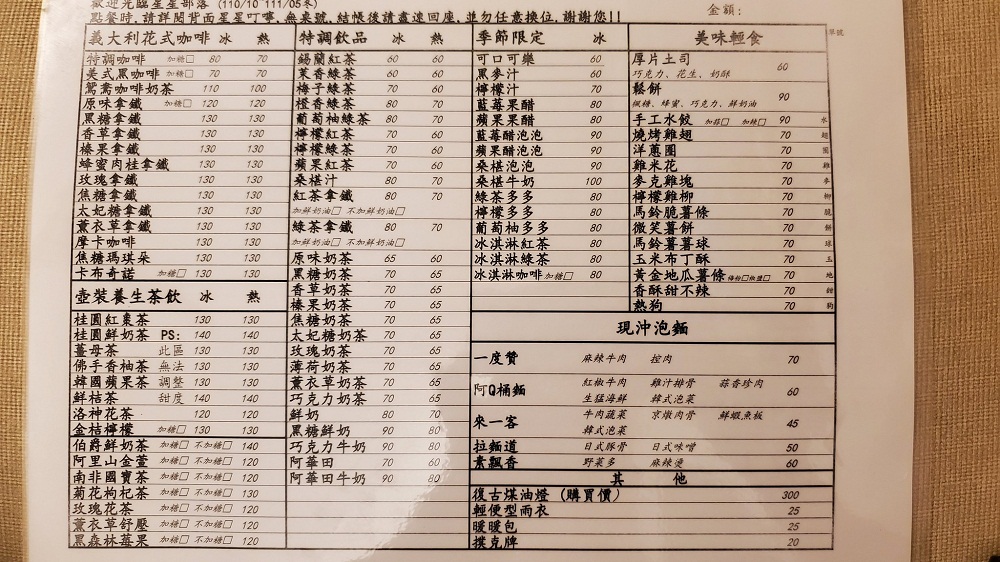 歡迎光臨星星部落 (110/10~111/05冬)
點餐時,請詳閱背面星星叮嚀,無桌號,結帳後請盡速回座,並勿任意換位,謝謝您!!
金額:
義大利花式咖啡 冰 熱
特調咖啡 加糖□ 80 70
美式黑咖啡 加糖□ 70 70
鴛鴦咖啡奶茶 110 100
原味拿鐵 加糖□ 120 120
黑糖拿鐵 130 130
香草拿鐵 130 130
榛果拿鐵 130 130
蜂蜜肉桂拿鐵 130 130
玫瑰拿鐵 130 130
焦糖拿鐵 130 130
太妃糖拿鐵 130 130
薰衣草拿鐵 130 130
摩卡咖啡 130 130
焦糖瑪琪朵 130 130
卡布奇諾 加糖□ 130 130
壺裝養生茶飲 冰 熱
桂圓紅棗茶 130 130
桂圓鮮奶茶 PS: 140 140
薑母茶 此區 130 130
佛手香柚茶 無法 130 130
韓國蘋果茶 調整 130 130
鮮桔茶 甜度 140 140
洛神花茶 120 120
金桔檸檬 加糖□ 130 130
伯爵鮮奶茶 加糖□ 不加糖□ 140
阿里山金萱 加糖□ 不加糖□ 120
南非國寶茶 加糖□ 不加糖□ 120
菊花枸杞茶 加糖□ 不加糖□ 130
玫瑰花茶 加糖□ 不加糖□ 120
薰衣草舒壓 加糖□ 不加糖□ 120
黑森林莓果 加糖□ 不加糖□ 120
特調飲品 冰 熱
錫蘭紅茶 60 60
茉香綠茶 60 60
梅子綠茶 70 60
橙香綠茶 80 70
葡萄柚綠茶 80 70
檸檬紅茶 70 60
檸檬綠茶 70 60
蘋果紅茶 70 60
桑椹汁 80 70
紅茶拿鐵 80 70
加鮮奶油□ 不加鮮奶油□
綠茶拿鐵 80 70
加鮮奶油□ 不加鮮奶油□
原味奶茶 65 60
黑糖奶茶 70 65
香草奶茶 70 65
榛果奶茶 70 65
焦糖奶茶 70 65
太妃糖奶茶 70 65
玫瑰奶茶 70 65
薄荷奶茶 70 65
薰衣草奶茶 70 65
巧克力奶茶 70 65
鮮奶 80 70
黑糖鮮奶 90 80
巧克力牛奶 90 80
阿華田 70 60
阿華田牛奶 90 80
季節限定 冰
可口可樂 60
黑麥汁 60
檸檬汁 70
藍莓果醋 80
蘋果果醋 80
藍莓醋泡泡 90
蘋果醋泡泡 90
桑椹泡泡 90
桑椹牛奶 100
綠茶多多 80
檸檬多多 80
葡萄柚多多 80
冰淇淋紅茶 80
冰淇淋綠茶 80
冰淇淋咖啡 加糖□ 80
美味輕食
單號
厚片土司 60
巧克力、花生、奶酥
鬆餅 90
楓糖、蜂蜜、巧克力、鮮奶油
手工水餃 加蒜□ 加辣□ 90 水
燒烤雞翅 70 翅
洋蔥圈 70 圈
雞米花 70 雞
麥克雞塊 70 麥
檸檬雞柳 70 柳
馬鈴脆薯條 70 脆
微笑薯餅 70 餅
馬鈴薯薯球 70 球
玉米布丁酥 70 玉
黃金地瓜薯條 70 地
香酥甜不辣 70 甜
熱狗 70 狗
現沖泡麵
一度贊 麻辣牛肉 控肉 70
阿Q桶麵 紅椒牛肉 雞汁排骨 蒜香珍肉 60
生猛海鮮 韓式泡菜
來一客 牛肉蔬菜 京燉肉骨 鮮蝦魚板 45
韓式泡菜
拉麵道 日式豚骨 日式味噌 50
素飄香 野菜多 麻辣燙 60
其他
復古煤油燈 (購買價) 300
輕便型雨衣 25
暖暖包 25
撲克牌 20